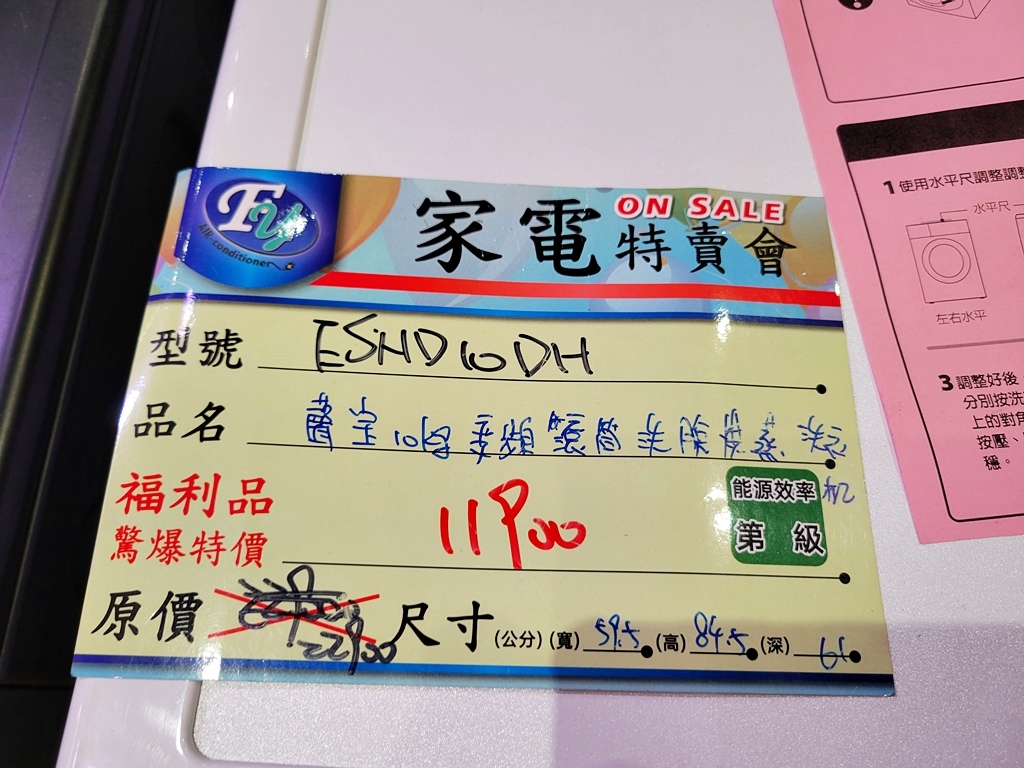 Fy
AIR-conditioner
家電特賣會
ON SALE
型號 ESHD10DH
品名 聲寶10kg變頻滾筒洗脫烘蒸洗衣
机
福利品
驚爆特價
11900
能源效率
第 級
原價 22900
尺寸(公分)(寬)59.5(高)84.5(深)61
1 使用水平尺調整調整
水平尺
左右水平
3 調整好後
分別按洗
上的對角
按壓、
穩。